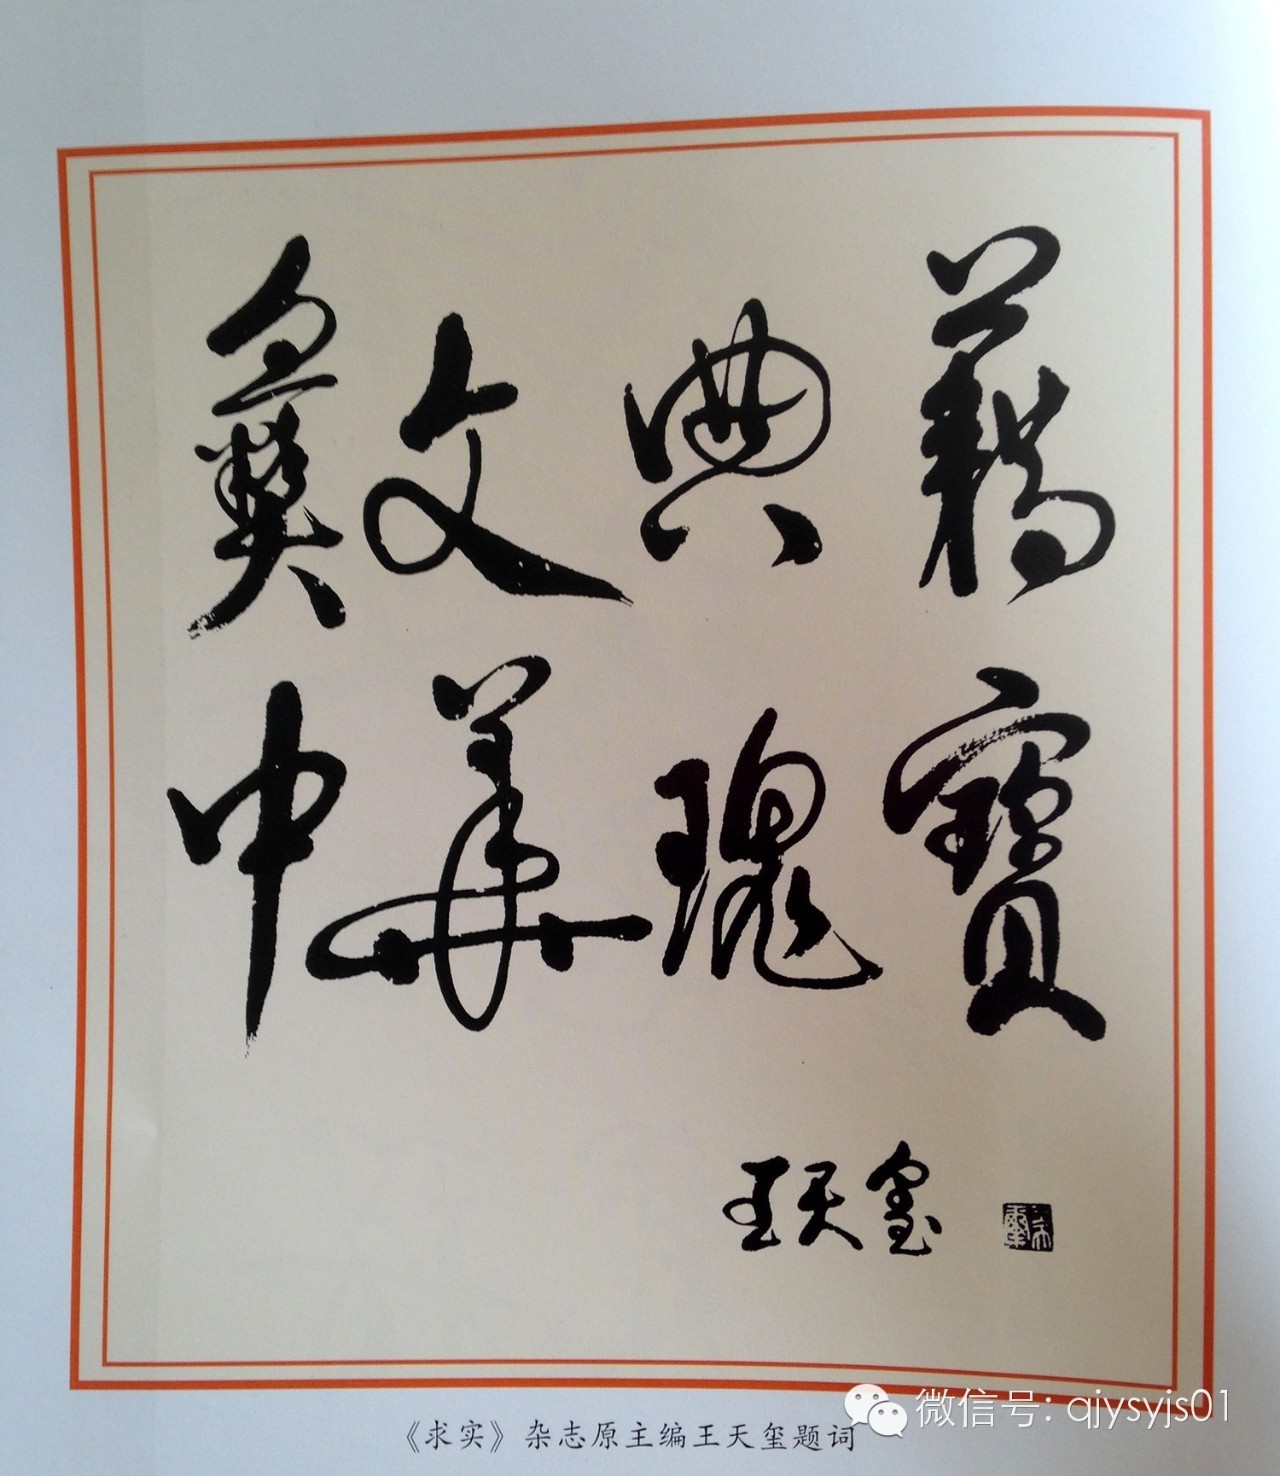 彝文典藉
中華瑰寶
王天玺
《求实》杂志原主编王天玺题词
微信号: qjysyjs01